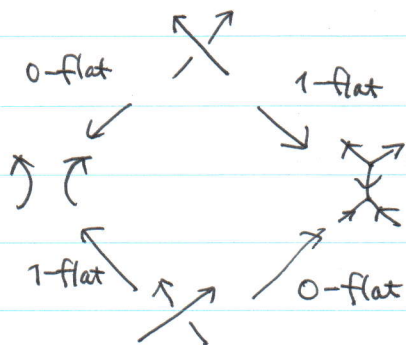 0-flat
1-flat
1-flat
0-flat